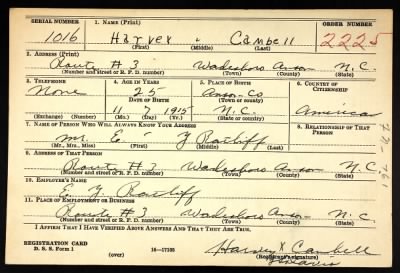 SERIAL NUMBER 1. NAME (Print) ORDER NUMBER
1016 Harvey Cambell 2225
(First) (Middle) (Last)
2. ADDRESS (Print)
Route # 3 Wadesboro Anson N.C.
(Number and street or R. F. D. number) (Town) (County) (State)
3. TELEPHONE 4. AGE IN YEARS 5. PLACE OF BIRTH 6. COUNTRY OF CITIZENSHIP
None 25 Anson-Co
DATE OF BIRTH (Town or county)
11 7 1915 N.C. America
(Exchange) (Number) (Mo.) (Day) (Yr.) (State or country)
7. NAME OF PERSON WHO WILL ALWAYS KNOW YOUR ADDRESS 8. RELATIONSHIP OF THAT PERSON
Mr. E. Y Ratliff
(Mr., Mrs., Miss) (First) (Middle) (Last)
9. ADDRESS OF THAT PERSON
Route # 3 Wadesboro Anson N.C.
(Number and street or R. F. D. number) (Town) (County) (State)
10. EMPLOYER'S NAME
E. Y. Ratliff
11. PLACE OF EMPLOYMENT OR BUSINESS
Route # 3 Wadesboro Anson N.C
(Number and street or R. F. D. number) (Town) (County) (State)
I AFFIRM THAT I HAVE VERIFIED ABOVE ANSWERS AND THAT THEY ARE TRUE.
REGISTRATION CARD
D. S. S. Form 1 (over) 16—17105 Harvey X Cambell
(Registrant's signature)